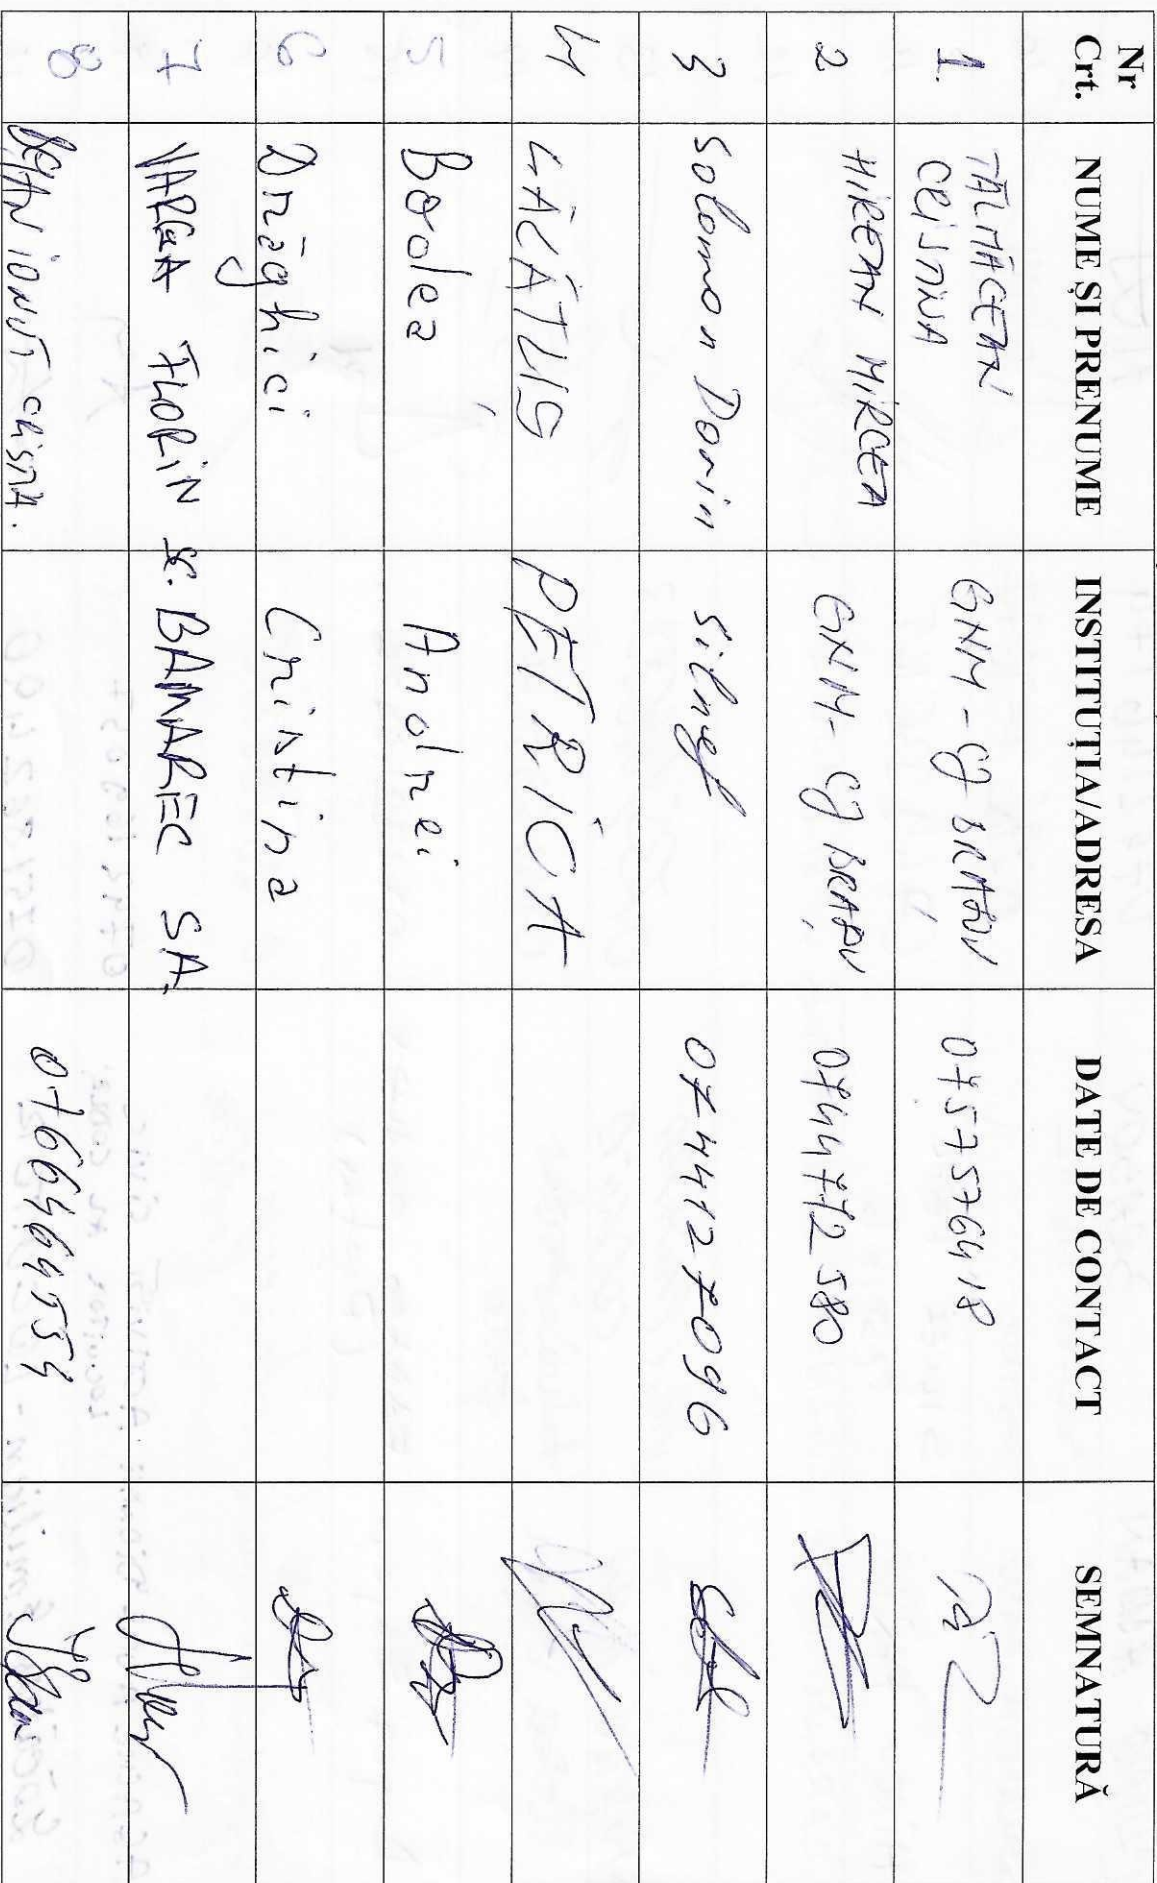 Nr Crt. NUME ȘI PRENUME INSTITUȚIA/ADRESA DATE DE CONTACT SEMNATURĂ
1. TĂLMĂCEAN CRISTINA GNM - CJ BRAȘOV 0757576418
2 HIREAN MIRCEA GNM - CJ BRAȘOV 0744772580
3 Solomon Dorin Silnef 0744127096
4 LĂCĂTUȘ PETRICĂ
5 Bodea Andrei
6 Drăghici Cristina
7 VARGA FLORIN SC. BAMAREC SA.
8 IONUȚ CRISTIA. 0766464554